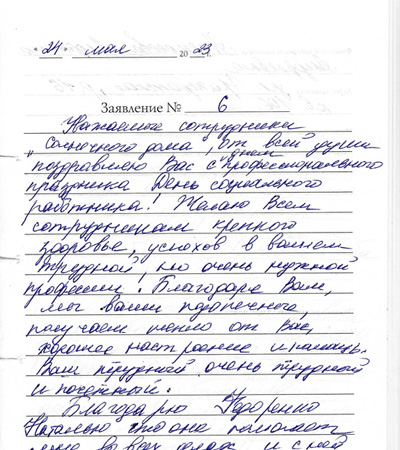 "24" мая 2023.
Заявление № 6
Уважаемые сотрудники
"Солнечного дома", от всей души
поздравляю Вас с днем профессионального
праздника День социального
работника! Желаю Всем
сотрудникам крепкого
здоровье, успохов в вашем
трудной, но очень нужной
професии! Благодаря Вам,
мы ваши подопечного,
получаем тепло от Вас,
хорошее настроение и помощь.
Ваш труд очень трудной
и почетный.
Благодарю Федоренко
Наталью что она помогает
мне во всех делах и с ней